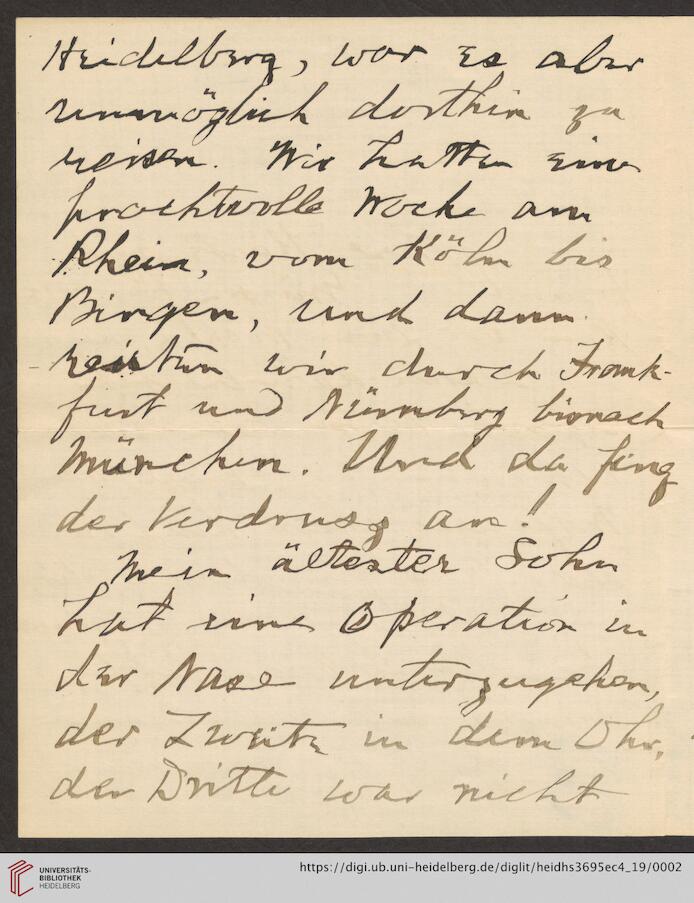 Heidelberg, war es aber
unmöglich dorthin zu
reisen. Wir hatten eine
prachtvolle Woche am
Rhein, vom Köln bis
Bingen, und dann
reisten wir durch Frank-
furt und Nürnberg
München. Und da fing
der Verdruss an!
Mein ältester Sohn
hat eine Operation in
der Nase unterzugehen,
der Zweite in dem Ohr,
der Dritte war nicht
UNIVERSITÄTS-
BIBLIOTHEK
HEIDELBERG
https://digi.ub.uni-heidelberg.de/diglit/heidhs3695ec4_19/0002